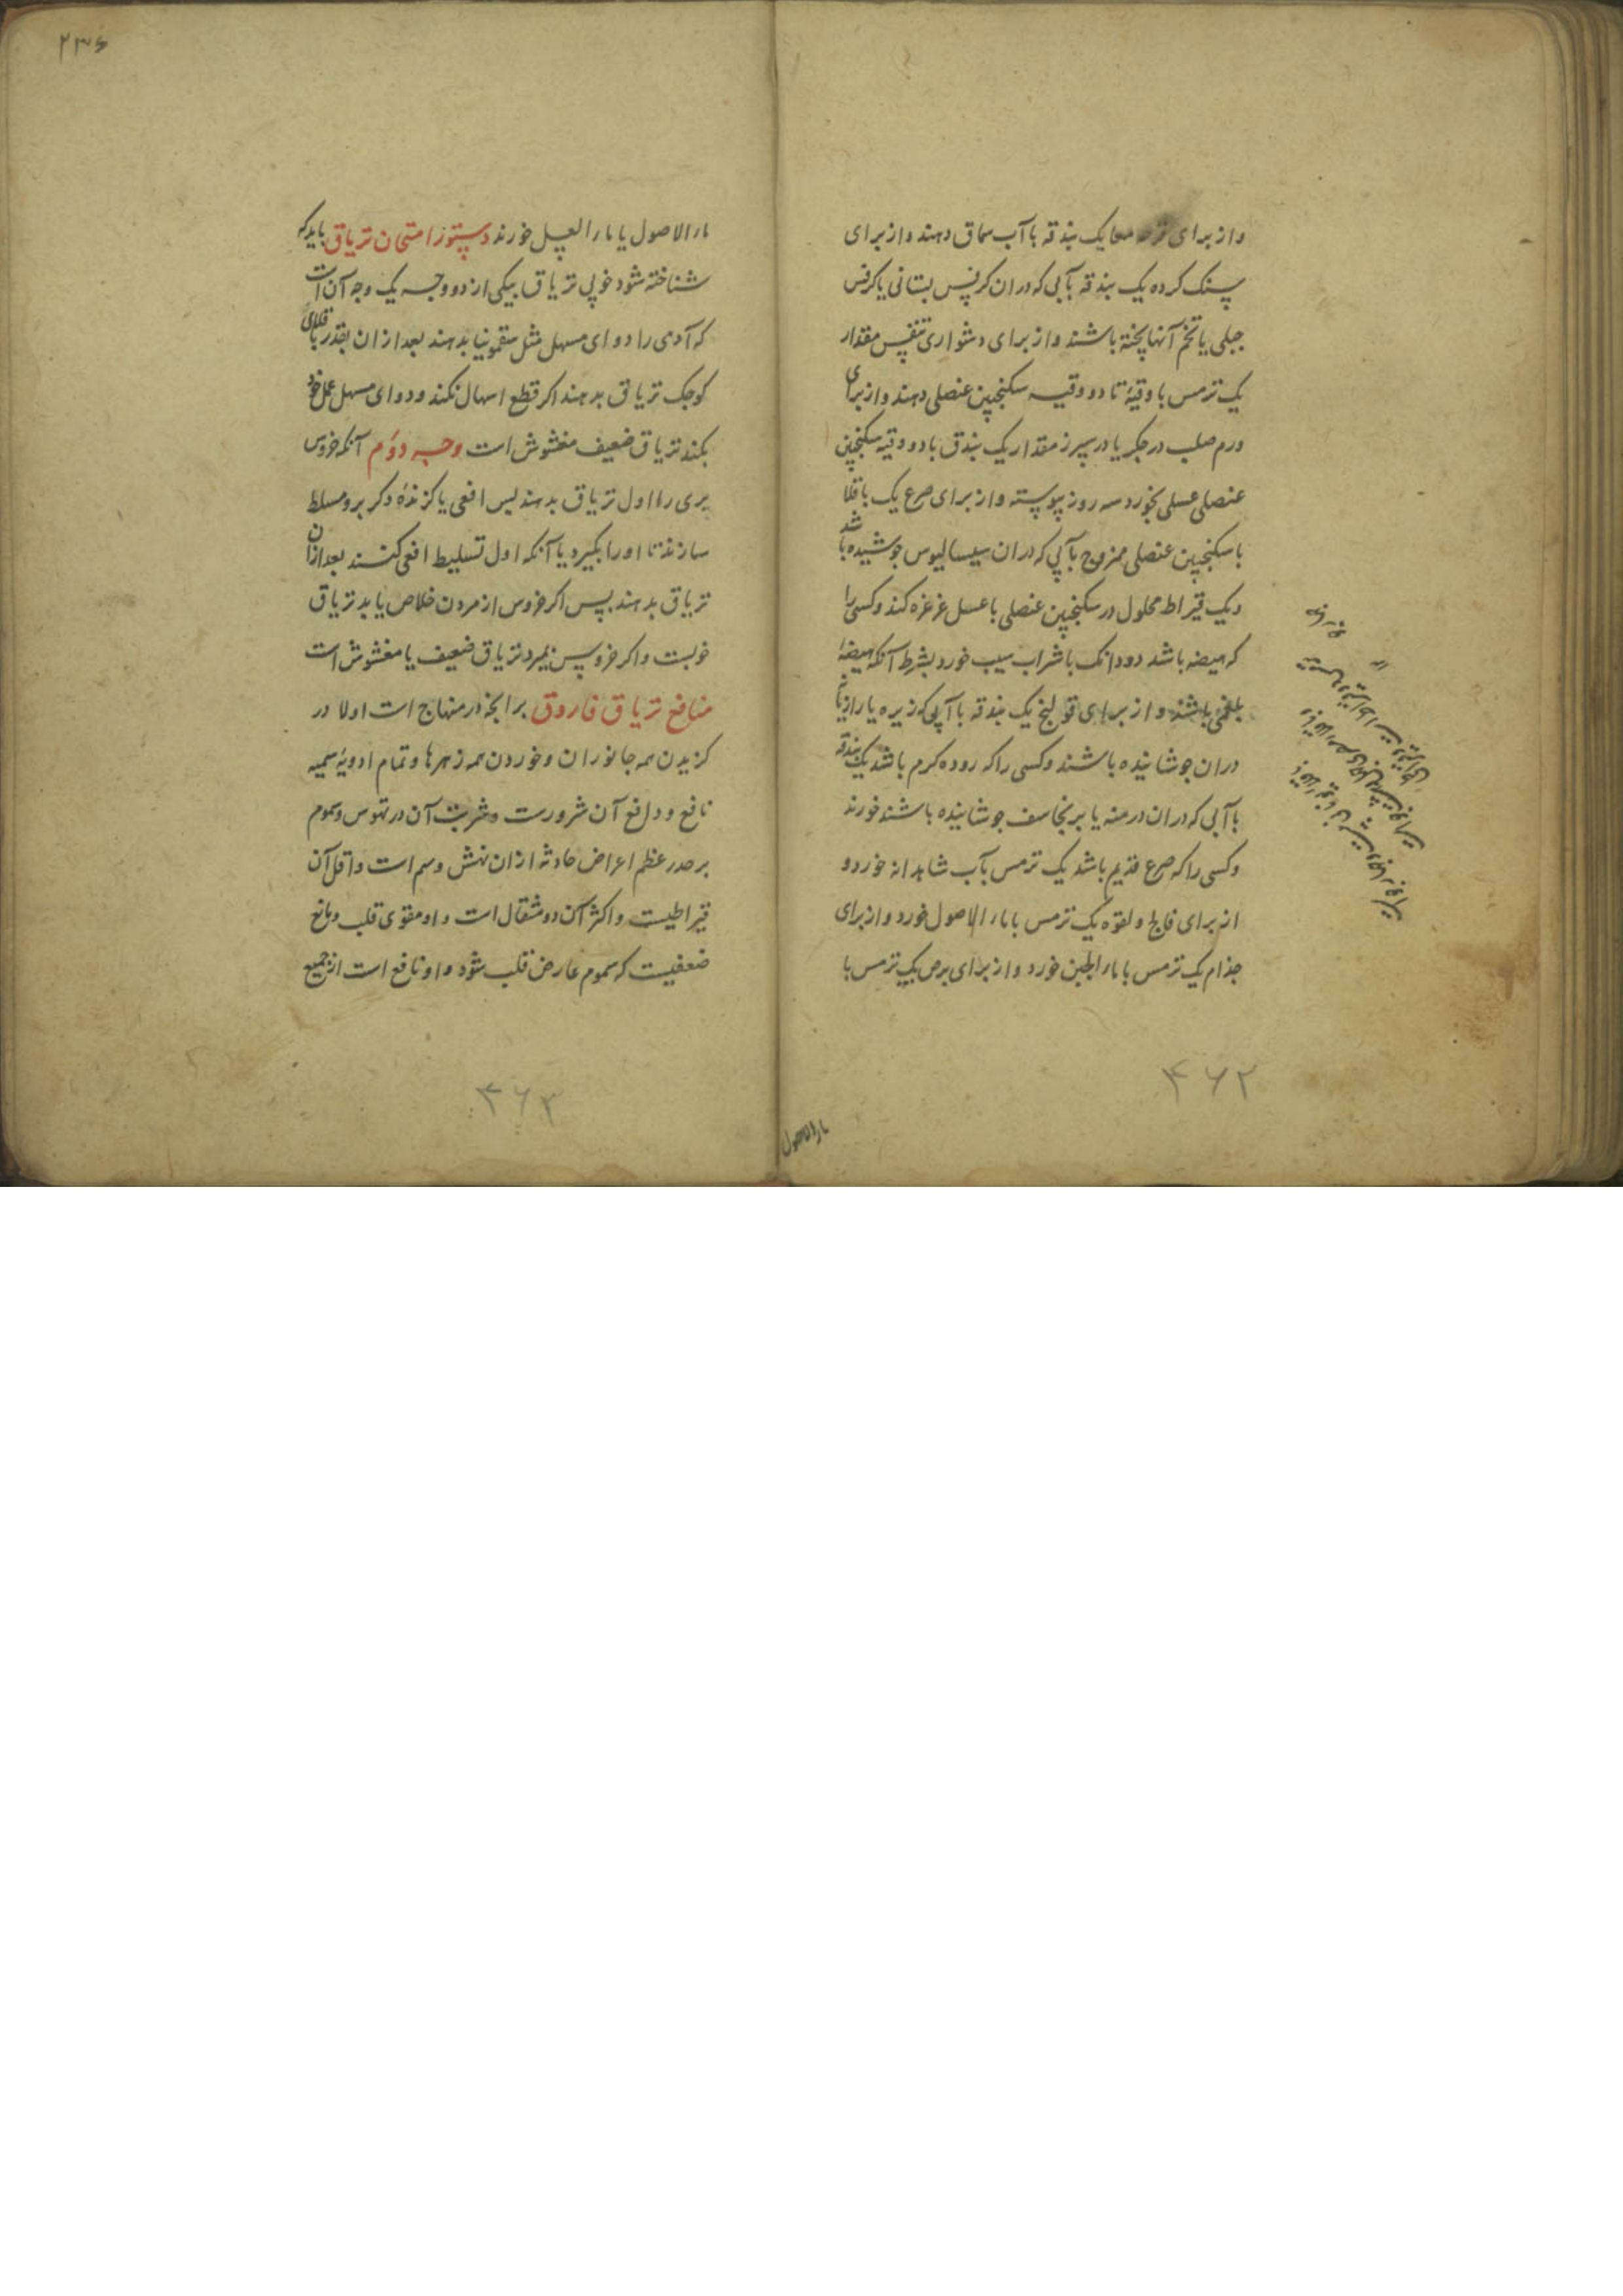 واز برای معا یک بندقه باآب سماق دهند واز برای
سنک کرده یک بندقه بآبی که دران کرفس بستانی یا کرفس
جبلی یا تخم آنها پخته باشند واز برای دشواری تنفس مقدار
یک ترمس با وقیهٔ تا دو وقیه سکنجبین عنصلی دهند واز برای
ورم صلب در جکر یا در سپرز مقدار یک بندق با دو وقیه سکنجبین
عنصلی عسلی بخورد سه روز پیوسته واز برای صرع یک باقلا
با سکنجبین عنصلی ممزوج بآبی که دران سیسالیوس جوشیده باشد
ویک قیراط محلول در سکنجبین عنصلی با عسل غرغره کند وکسی را
که هیضه باشد دودانک باشراب سیب خورد بشرط آنکه هیضهٔ
بلغمی باشد واز برای قولنج یک بندقه باآبی که زیره یا رازیانه
دران جوشانیده باشند وکسی را که روده کرم باشد یک بندقه
باآبی که دران درمنه یا برنجاسف جوشانیده باشند خورند
وکسی را که صرع قدیم باشد یک ترمس بآب شاهدانه خورد و
از برای فالج ولقوه یک ترمس باماء الاصول خورد واز برای
جذام یک ترمس باماء الجبن خورد واز برای برص یک ترمس با
۴۶۲
ماء الاصول
۲۳۶
ماء الاصول یا ماء العسل خورند دستور امتحان تریاق باید که
شناخته شود خوبی تریاق بیکی از دو وجه یک وجه آن است
که آدمی را دوای مسهل مثل سقمونیا بدهند بعد ازان بقدر باقلای
کوجک تریاق بدهند اکر قطع اسهال نکند ودوای مسهل عمل خود
بکند تریاق ضعیف مغشوش است وجه دوم آنکه خروس
بری را اول تریاق بدهند پس افعی یا کزندهٔ دکر برو مسلط
سازند تا اورا بکیرد یا آنکه اول تسلیط افعی کنند بعد ازان
تریاق بدهند پس اکر خروس از مردن خلاص یابد تریاق
خوبست واکر خروس بمیرد تریاق ضعیف یا مغشوش است
منافع تریاق فاروق برانجه در منهاج است اولا در
کزیدن همه جانوران وخوردن همه زهرها وتمام ادویهٔ سمیه
نافع ودافع آن شرورت وشربت آن در نهوس وسموم
برحدر عظم اعراض حادثه ازان نهش وسم است واقل آن
قیراطیست واکثر آن دو مثقال است واو مقوی قلب ومانع
ضعفیست که سموم عارض قلب شود واو نافع است از جمیع
۴۶۳